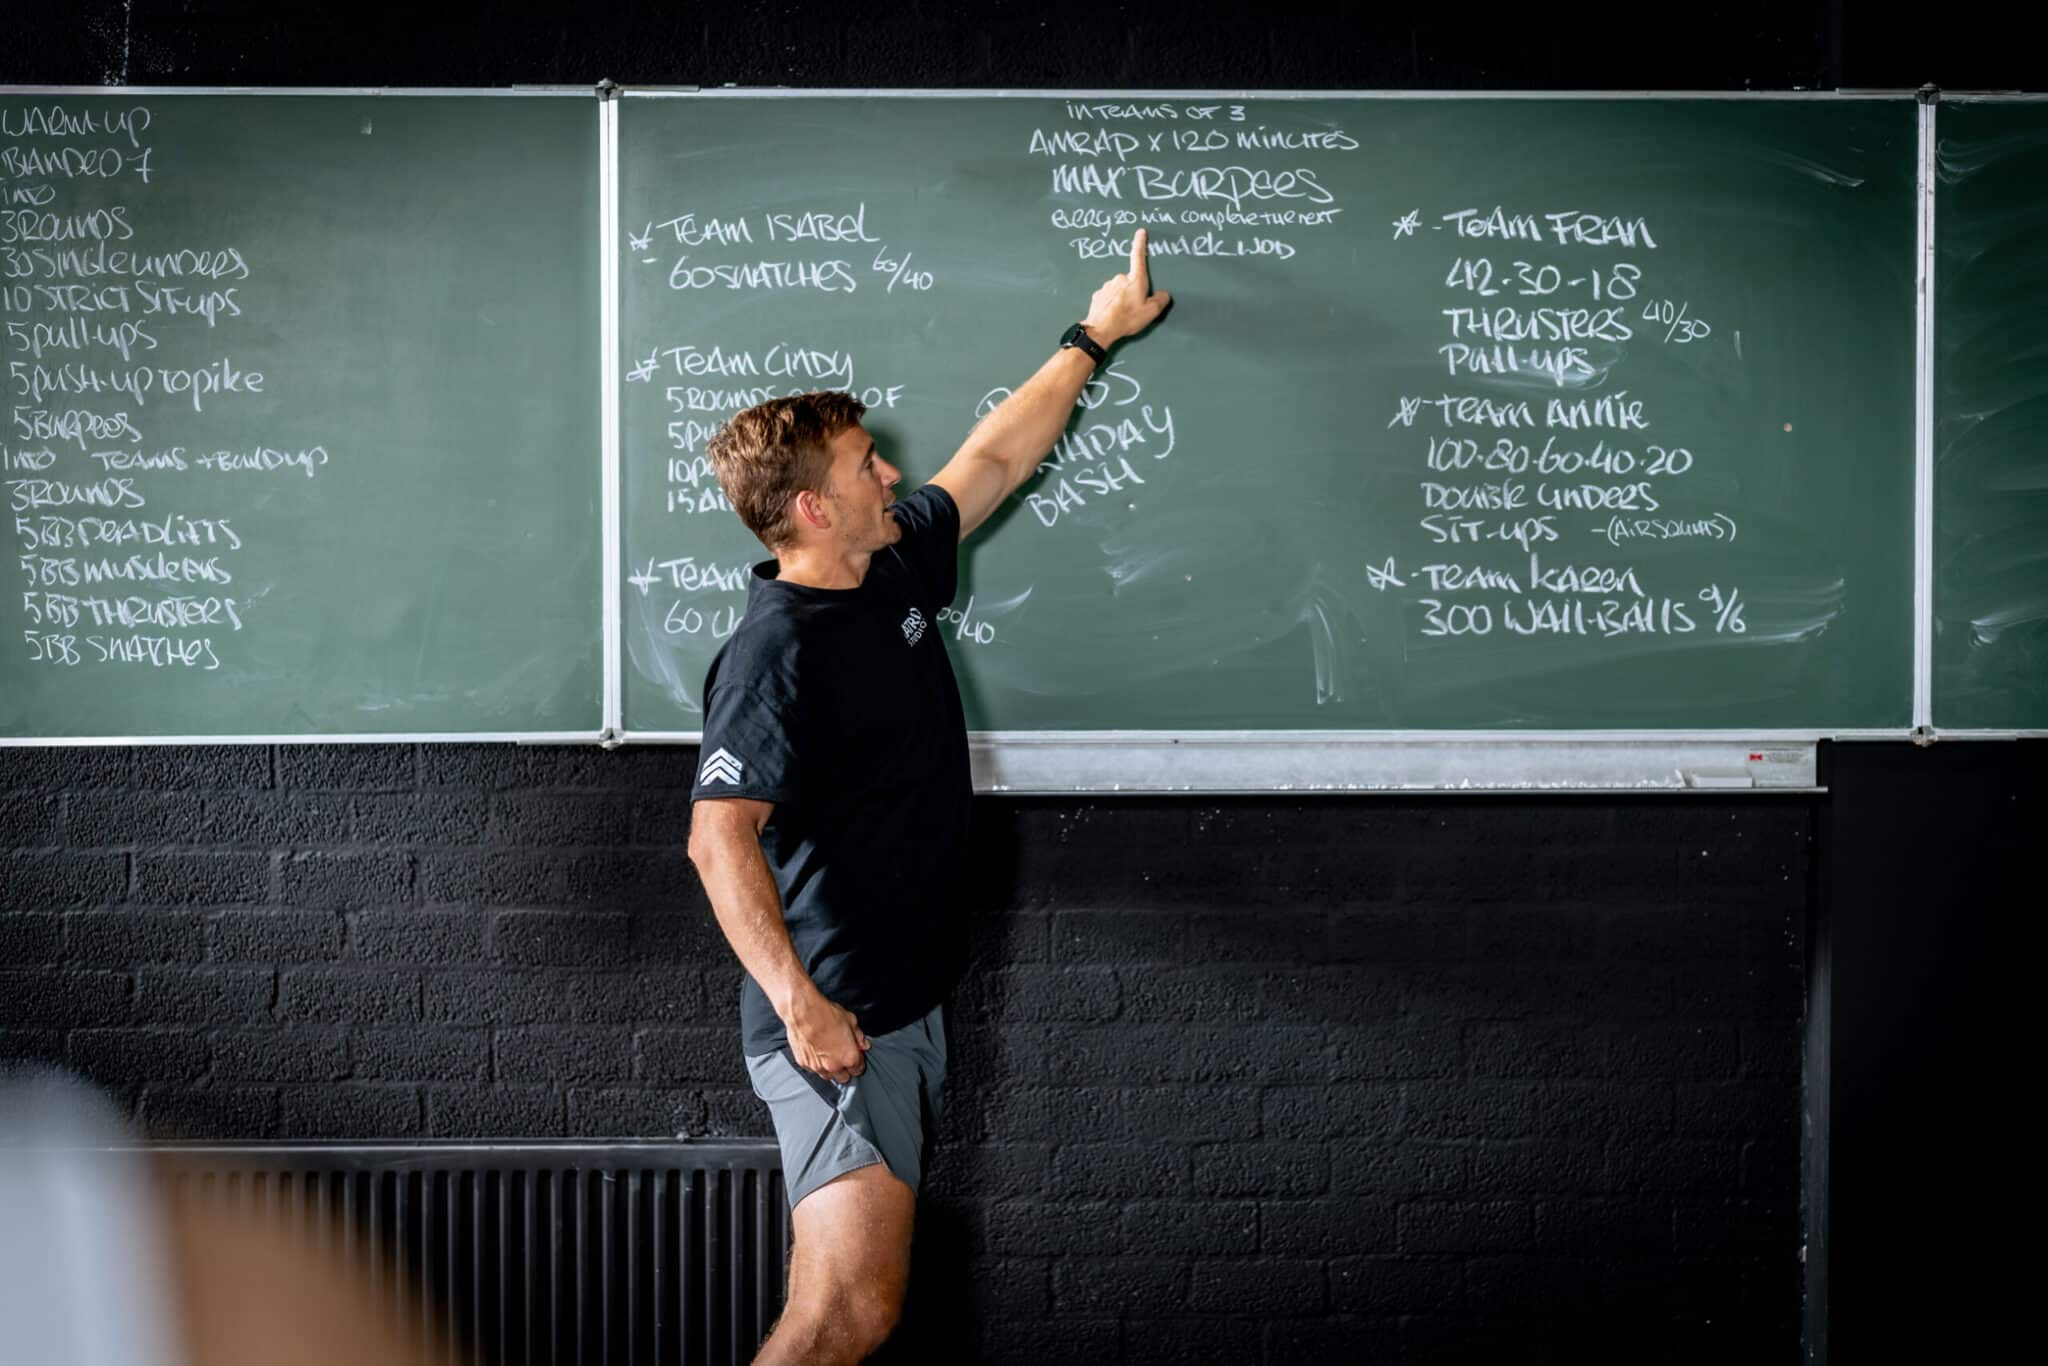 WARM-UP
BANDED 7
INTO
3 ROUNDS
30 SINGLE UNDERS
10 STRICT SIT-UPS
5 PULL-UPS
5 PUSH-UP TO PIKE
5 BURPEES
INTO TEAMS + BUILD UP
3 ROUNDS
5 BB DEADLIFTS
5 BB MUSCLEENS
5 BB THRUSTERS
5 BB SNATCHES
IN TEAMS OF 3
AMRAP X 120 MINUTES
MAX BURPEES
EVERY 20 MIN COMPLETE THE NEXT
BENCHMARK WOD
* TEAM ISABEL
60 SNATCHES 60/40
* TEAM CINDY
5 ROUNDS OF
5
10
15 AI
* TEAM
60 /40
BIRTHDAY
BASH
* - TEAM FRAN
42-30-18
THRUSTERS 40/30
PULL-UPS
* - TEAM ANNIE
100-80-60-40-20
DOUBLE UNDERS
SIT-UPS - (AIRSQUATS)
* - TEAM KAREN
300 WALL-BALLS 9/6
STUDIO